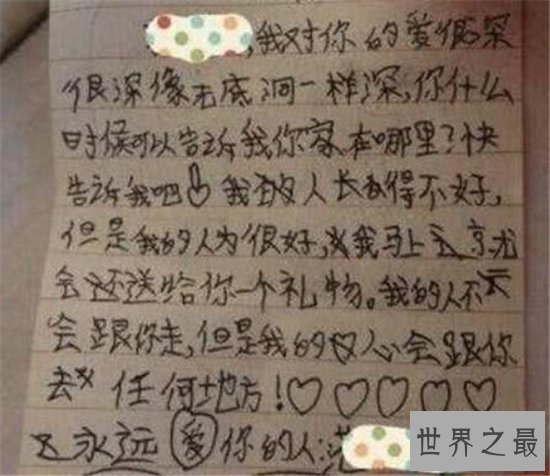 ,我对你的爱很深
很深像无底洞一样深,你什么
时候可以告诉我你家在哪里?快
告诉我吧 我 人长 得不好,
但是我的人为很好,我马上 就
会 送给你一个礼物。我的人不
会跟你走,但是我的心会跟你
去 任何地方!♡♡♡♡♡
永远爱你的人:
世界之最